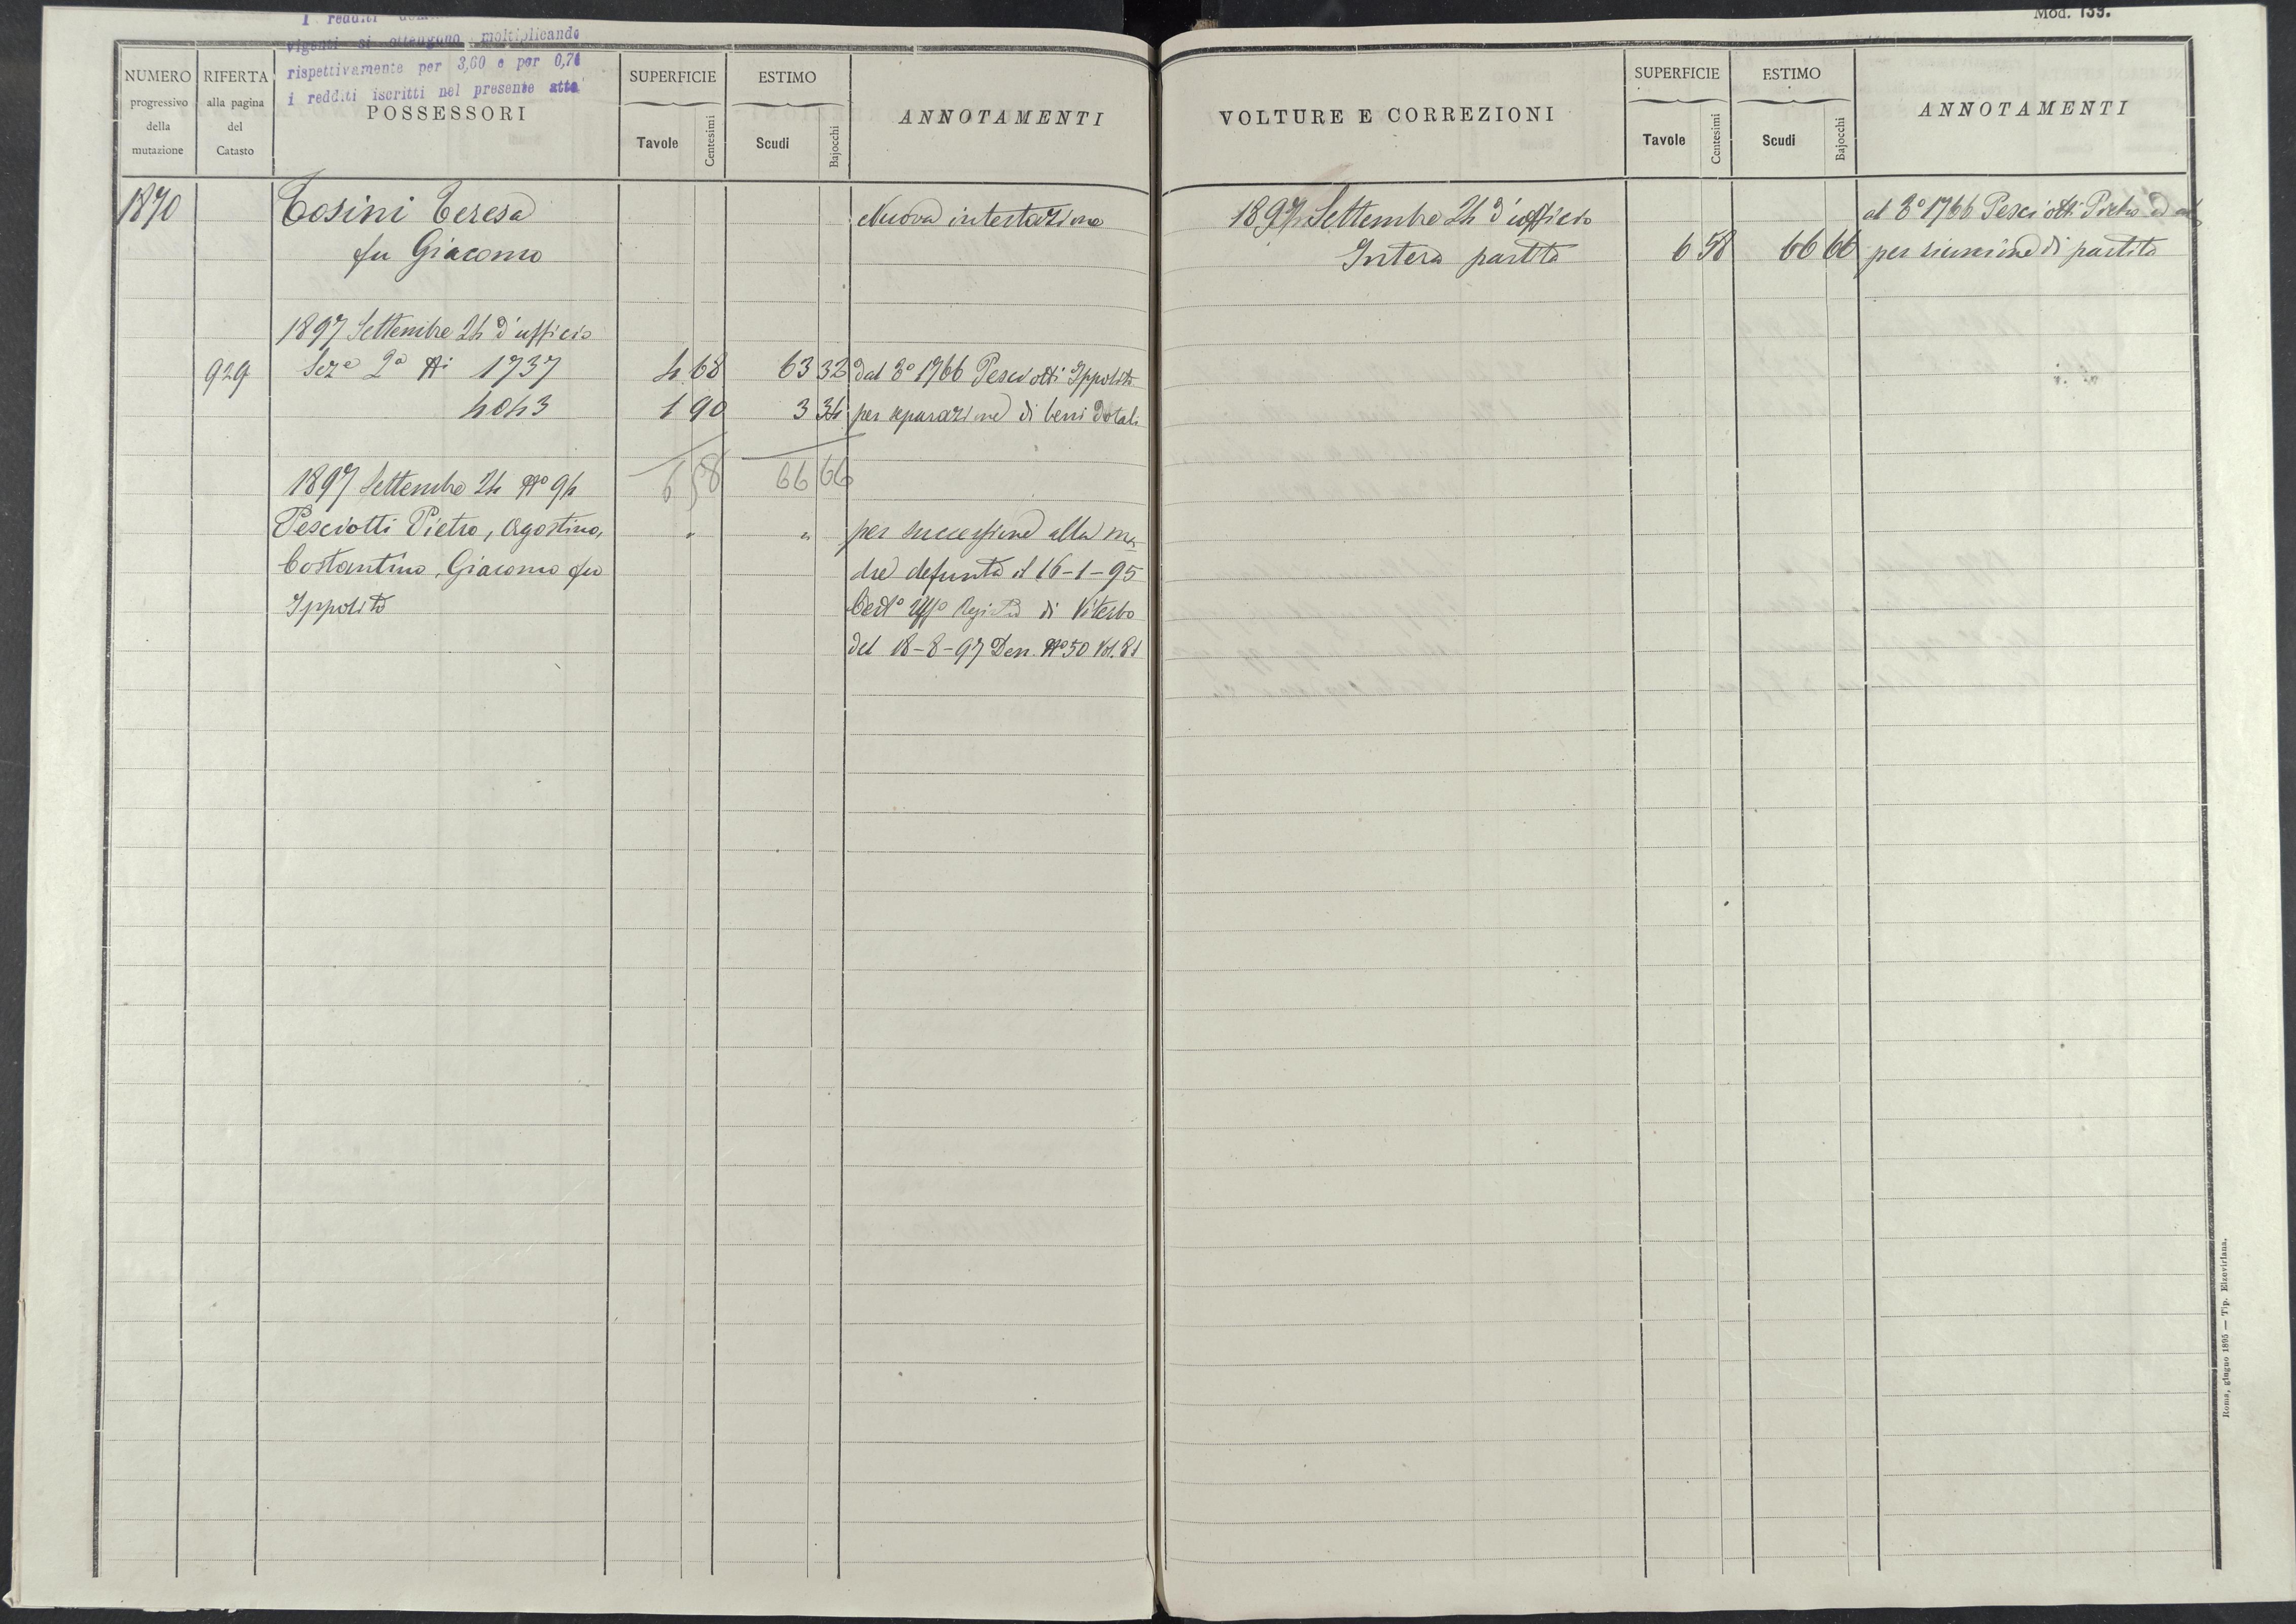 Mod. 139.
I redditi
vigenti si ottengono moltiplicando
rispettivamente per 3,60 e per 0,71
i redditi iscritti nel presente atto
NUMERO
progressivo
della
mutazione
RIFERTA
alla pagina
del
Catasto
POSSESSORI
SUPERFICIE
Tavole
Centesimi
ESTIMO
Scudi
Bajocchi
ANNOTAMENTI
1870 Tosini Teresa Nuova intestazione
fu Giacomo
1897 Settembre 24 d'ufficio
929 Seze 2a Ni 1737 4 68 63 32 dal 3o 1766 Pesciotti Ippolito
4043 1 90 3 34 per separazione di beni dotali
6 58 66 66
1897 Settembre 24 No 94
Pesciotti Pietro, Agostino, " " per successione alla ma
Costantino, Giacomo fu dre defunta il 16-1-95
Ippolito Certo Uffo Registro di Viterbo
del 18-8-97 Den. No 50 Vol. 81
VOLTURE E CORREZIONI
SUPERFICIE
Tavole
Centesimi
ESTIMO
Scudi
Bajocchi
ANNOTAMENTI
1897 Settembre 24 d'ufficio al 3o 1766 Pesciotti Pietro ed
Intera partita 6 58 66 66 per riunione di partita
Roma, giugno 1895 — Tip. Elzeviriana.